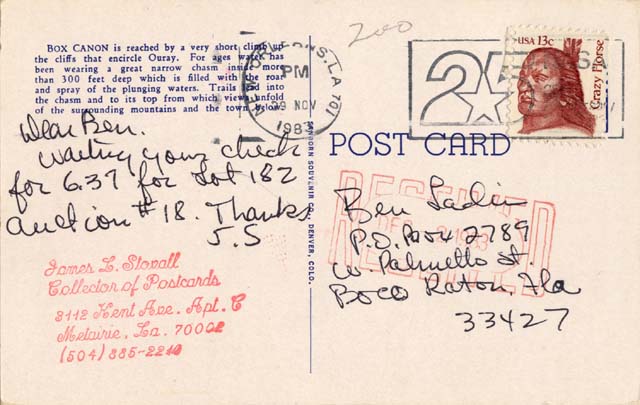 BOX CANON is reached by a very short climb up
the cliffs that encircle Ouray. For ages water has
been wearing a great narrow chasm inside more
than 300 feet deep which is filled with the roar
and spray of the plunging waters. Trails lead into
the chasm and to its top from which views unfold
of the surrounding mountains and the town below.
Dear Ben.
Waiting your check
for 6.37 for Lot 182
auction #18. Thanks
J.S
James L. Stovall
Collector of Postcards
3112 Kent Ave. Apt. C
Metairie, La. 70002
(504) 885-2210
SANBORN SOUVENIR CO., DENVER, COLO.
200
NEW ORLEANS, LA 701
PM
29 NOV
1983
25
USA
USA 13c
Crazy Horse
POST CARD
Ben Ladin
P.O. Box 2789
W. Palmetto St.
Boco Raton, Fla
33427